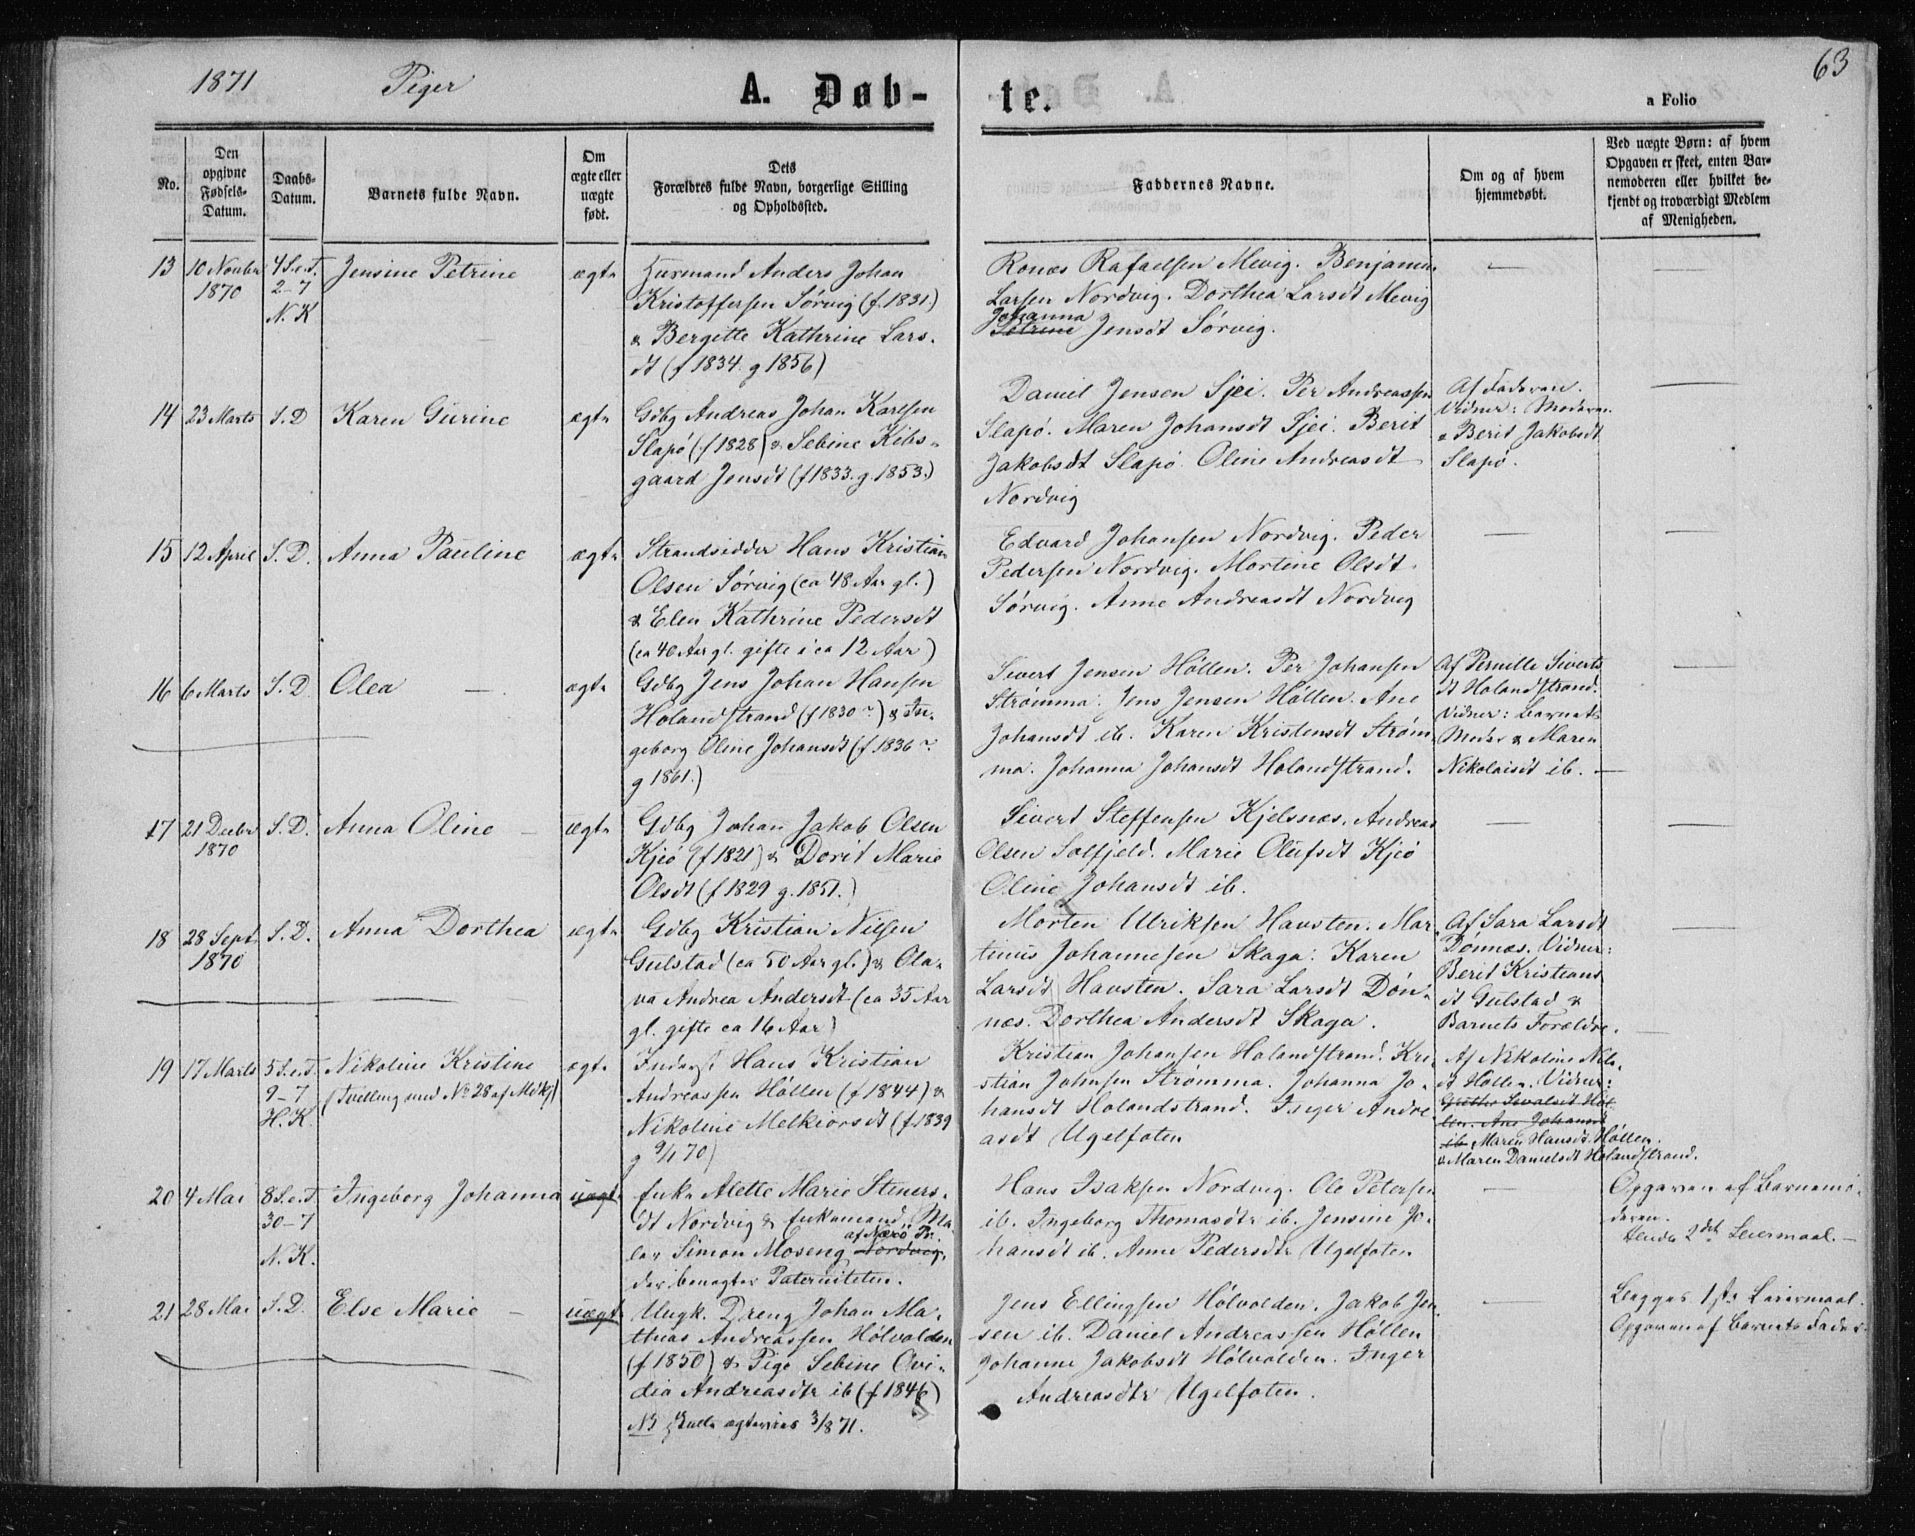 1871 Piger A. Døb-te. 63
a Folio
No.
Den opgivne Fødsels-Datum.
Daabs-Datum.
Barnets fulde Navn.
Om ægte eller uægte født.
Dets Forældres fulde Navn, borgerlige Stilling og Opholdssted.
Faddernes Navne.
Om og af hvem hjemmedøbt.
Ved uægte Børn: af hvem Opgaven er skeet, enten Barnemoderen eller hvilket bekjendt og troværdigt Medlem af Menigheden.
13 10 Novbr 1870
4 S.e.T. 2-7 N.K
Jensine Petrine
ægte
Husmand Anders Johan
Kristoffersen Sørvig (f.1831.)
& Bergitte Kathrine Lars-
dt (f 1834. g 1856)
Ronæs Rafaelsen Mevig. Benjamin
Larsen Nordvig. Dorthea Larsdt Mevig
Johanna
Petrine Jensdt Sørvig.
—
14 23 Marts
S.D
Karen Gurine
ægte
Gdbg Andreas Johan Karlsen
Slapø (f 1828) & Sebine Kibs-
gaard Jensdt (f 1833. g. 1853.)
Daniel Jensen Sjei. Per Andreassen
Slapø. Maren Johansdt Sjei. Berit
Jakobsdt Slapø. Oline Andreasdt
Nordvig
Af Faderen.
Vidner: Moderen
& Berit Jakobsdt
Slapø.
—
15 12 April
S.D.
Anna Pauline
ægte
Strandsidder Hans Kristian
Olsen Sørvig (ca 48 Aar gl.)
& Elen Kathrine Pedersdt
(ca 40 Aar gl. gifte i ca 12 Aar)
Edvard Johansen Nordvig. Peder
Pedersen Nordvig. Martine Olsdt
Sørvig. Anne Andreasdt Nordvig
—
—
16 6 Marts
S.D.
Olea —
ægte
Gdbg Jens Johan Hansen
Holandstrand (f 1830 ?) & In-
geborg Oline Johansdt (f. 1836 ?
g 1861.)
Sivert Jensen Høllen. Per Johansen
Strømma. Jens Jensen Høllen. Ane
Johansdt ib. Karen Kristensdt Strøm-
ma. Johanna Johansdt Holandstrand.
Af Pernille Siverts
dt Holandstrand.
Vidner: barnets
Moder & Maren
Nikolaisdt ib. —
—
17 21 Decbr 1870
S.D.
Anna Oline —
ægte
Gdbg Johan Jakob Olsen
Kjeø (f 1821) & Dorit Marie
Olsdt (f 1829 g. 1851.)
Sivert Steffensen Kjelsnæs. Andreas
Olsen Solfjeld. Marie Olufsdt Kjeø
Oline Johansdt ib.
—
—
18 28 Septr 1870
S.D.
Anna Dorthea
ægte
Gdbg Kristian Nilsen
Gulstad (ca 50 Aar gl.) & Ola-
va Andrea Andersdt (ca 35 Aar
gl. gifte ca 16 Aar)
Morten Ulriksen Havsten. Mar-
tinus Johannesen Skaga. Karen
Larsdt Havsten. Sara Larsdt Døn-
næs. Dorthea Andersdt Skaga.
Af Sara Larsdt
Dønnæs. Vidner:
Berit Kristians
dt Gulstad &
Barnets Forældre.
—
19 17 Marts
5 S.e.T. 9-7 H.K.
Nikoline Kristine
(Tvilling med No 28 af Mdkj)
ægte
Inderst Hans Kristian
Andreassen Høllen (f 1844) &
Nikoline Melkiorsdt (f 1839
g 9/1 70)
Kristian Johansen Holandstrand. Kri-
stian Johnsen Strømma. Johanna Jo-
hansdt Holandstrand. Inger Andre-
asdt Ugelfoten
Af Nikoline Nils-
dt Høllen. Vidner:
Grethe Sivalsdt Høl-
len. Ane Johansd
ib. Maren Hansdt Høllen.
& Maren Danielsdt Holandstrand.
—
20 4 Mai
8 S.e.T. 30-7 N.K.
Ingeborg Johanna
uægte
Enke Alette Marie Steners-
dt Nordvig & Enkemand, Ma-
af Nærø Pr.
ler Simon Moseng Nordvig,
der benægter Paterniteten.
Hans Isaksen Nordvig. Ole Petersen
ib. Ingeborg Thomasdtr ib. Jensine Jo-
hansdt ib. Anne Pedersdtr Ugelfoten
—
Opgaven af Barnemo-
deren.
Hendes 2det Leiermaal. —
21 28 Mai
S.D.
Else Marie —
uægte
Ungk. Dreng Johan Ma-
thias Andreassen Hølvolden
(f 1850) & Pige Sebine Ovi-
dia Andreasdtr ib (f 1846)
NB Bulle ægteviet 3/8 71.
Jens Ellingsen Hølvolden. Jakob Jen-
sen ib. Daniel Andreassen Høllen
Johanne Jakobsdt Hølvolden. Inger
Andreasdtr Ugelfoten.
—
Begges 1ste Leiermaal.
Opgaven af Barnets Fader.